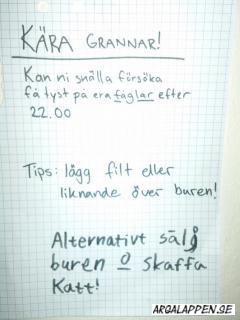 KÄRA GRANNAR!
Kan ni snälla försöka
få tyst på era fåglar efter
22.00
Tips: lägg filt eller
liknande över buren!
Alternativt sälj
buren o skaffa
Katt!
ARGALAPPEN.SE